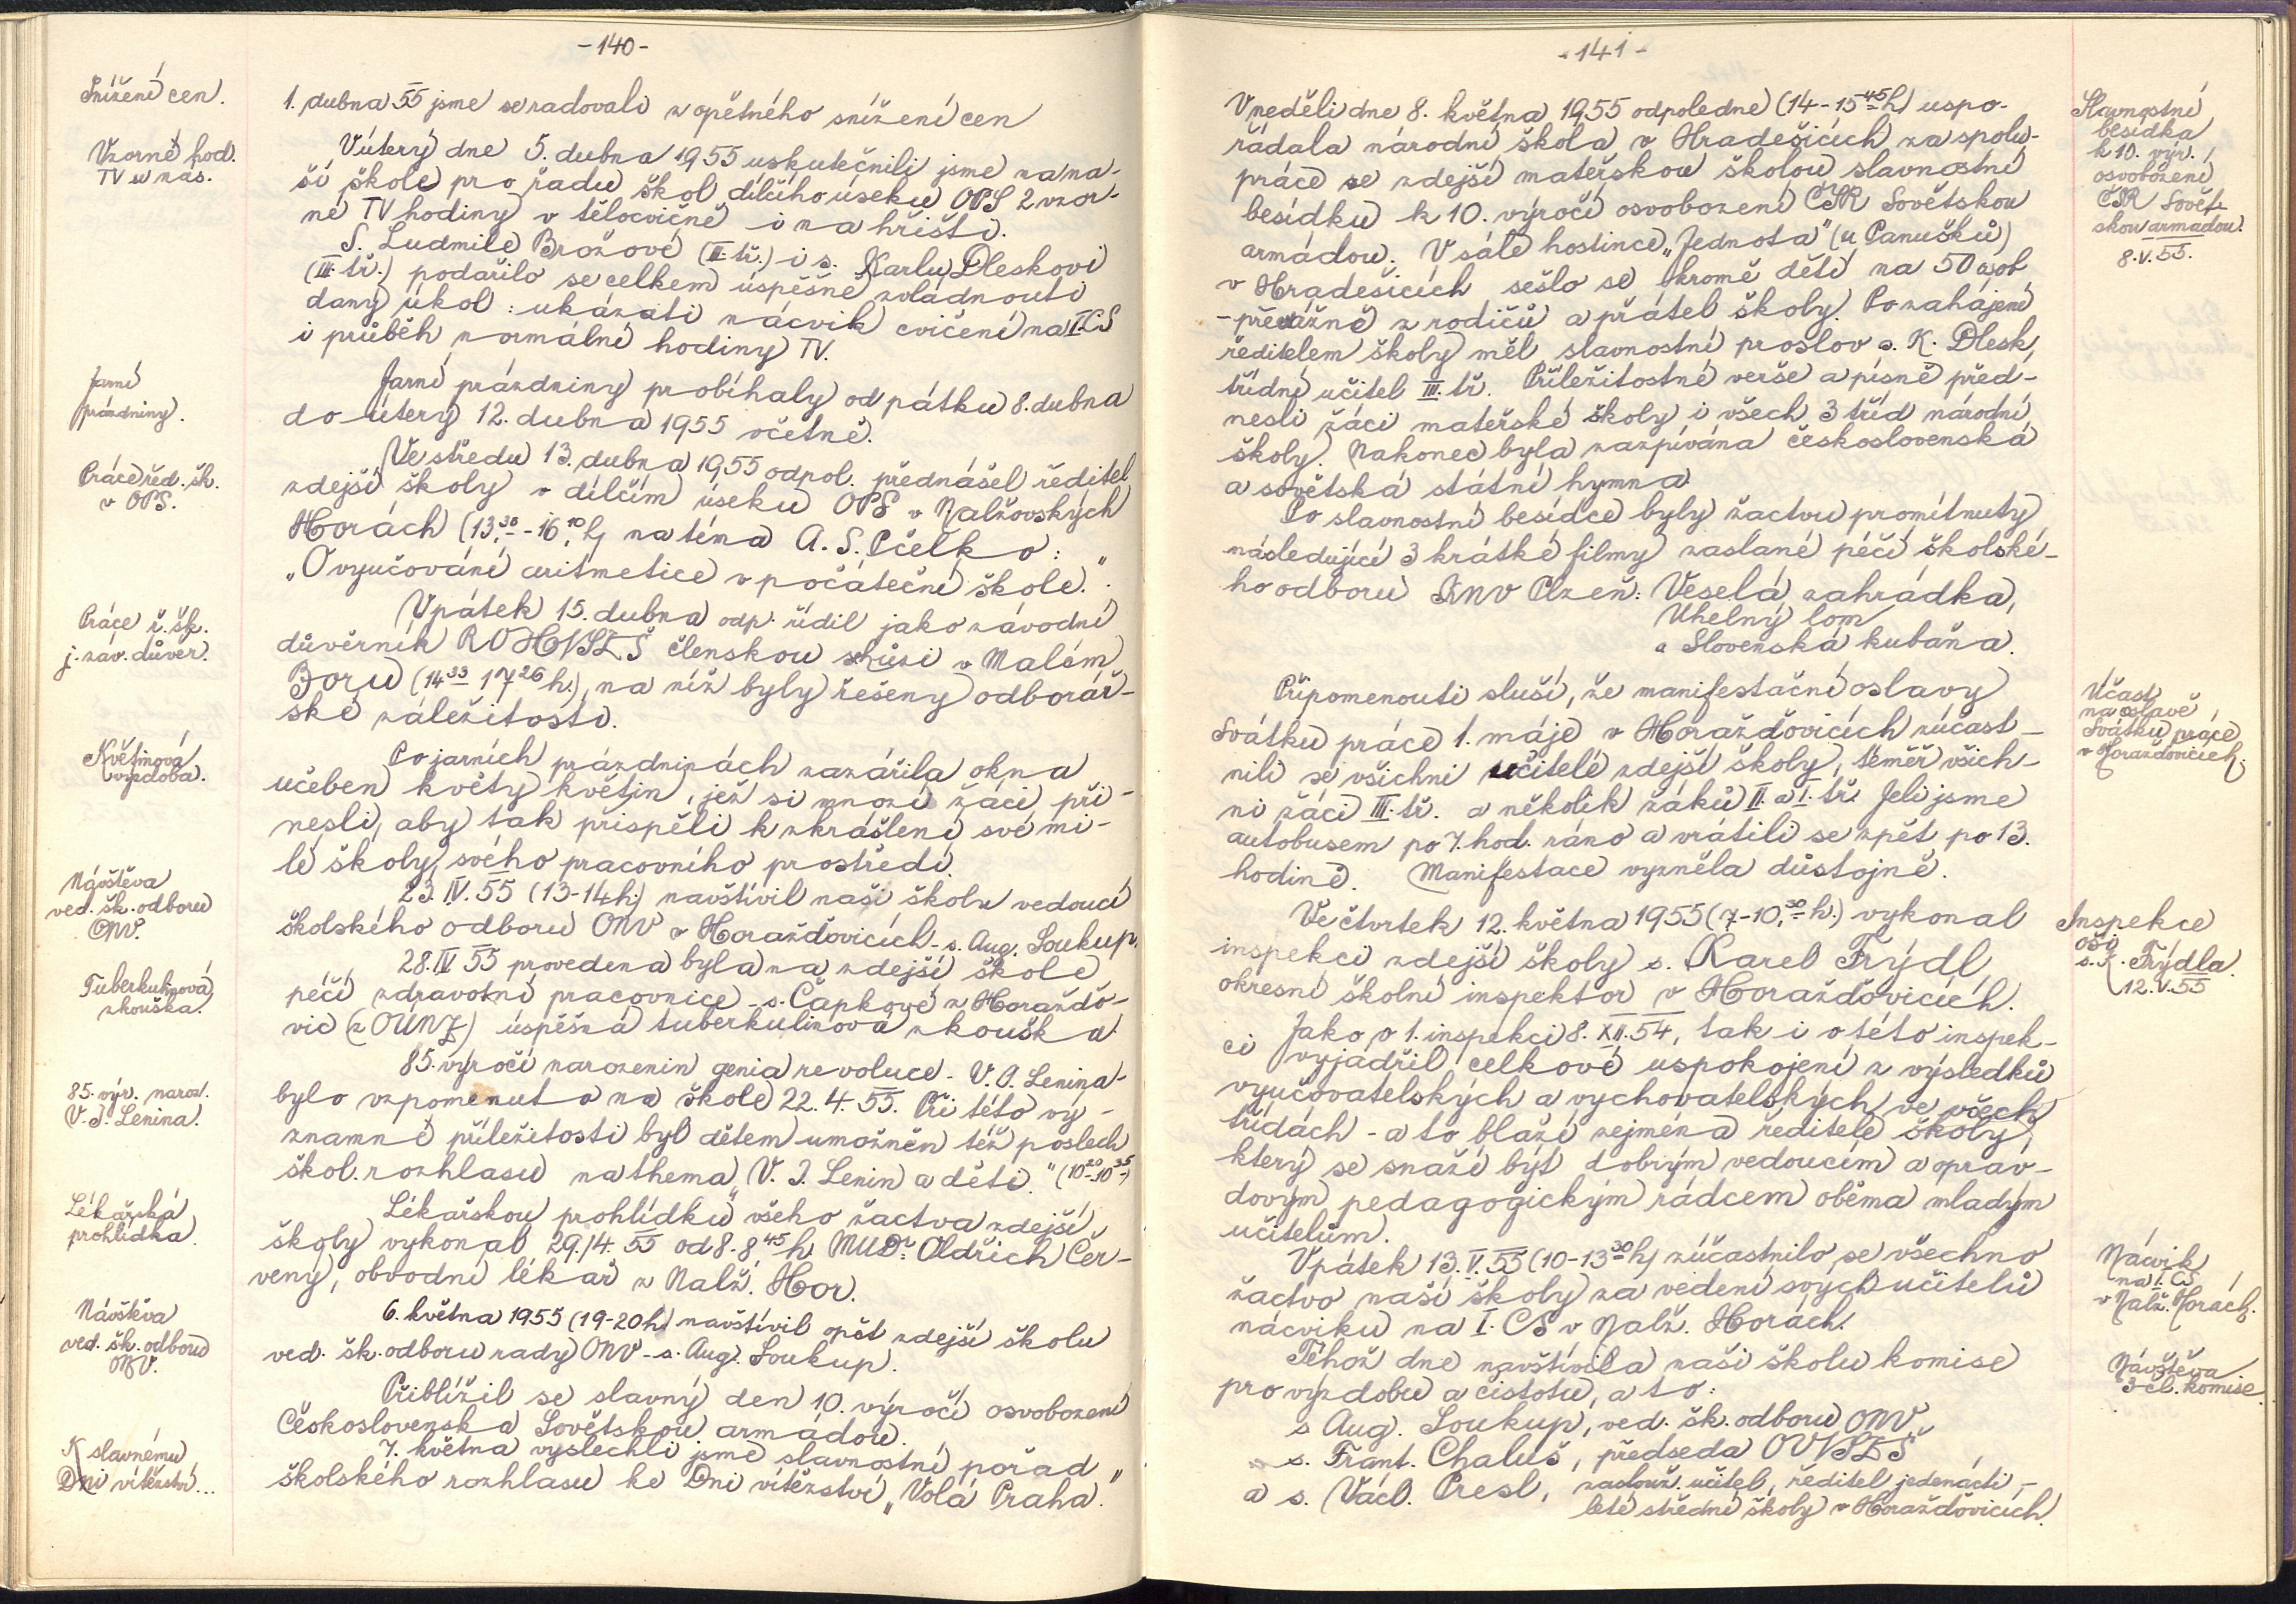 -140-
Snížení cen.
1. dubna 55 jsme se radovali z opětného snížení cen
Vzorné hod.
TV u nás.
V úterý dne 5. dubna 1955 uskutečnili jsme na na-
ší škole pro řadu škol dílčího úseku OPS 2 vzor-
né TV hodiny v tělocvičně i na hřišti.
S. Ludmile Brožové (II. tř.) i s. Karlu Dleskovi
(III. tř.) podařilo se celkem úspěšně zvládnouti
daný úkol: ukázati nácvik cvičení na I. CS
i průběh normální hodiny TV.
Jarní
prázdniny.
Jarní prázdniny probíhaly od pátku 8. dubna
do úterý 12. dubna 1955 včetně.
Práce řed. šk.
v OPS.
Ve středu 13. dubna 1955 odpol. přednášel ředitel
zdejší školy v dílčím úseku OPS v Nalžovských
Horách (13,30-16,10 h) na téma A. S. Pčelko:
„O vyučování aritmetice v počáteční škole.“
Práce ř. šk.
j. záv. důvěr.
V pátek 15. dubna odp. řídil jako závodní
důvěrník ROH VŠZŠ členskou schůzi v Malém
Boru (14 33 17 26 h.), na níž byly řešeny odborář-
ské záležitosti.
Květinová
výzdoba.
Po jarních prázdninách zazářila okna
učeben květy květin, jež si mnozí žáci při-
nesli, aby tak přispěli k zkrášlení své mi-
lé školy, svého pracovního prostředí.
Návštěva
ved. šk. odboru
ONV.
23. IV. 55 (13-14 h.) navštívil naši školu vedoucí
školského odboru ONV v Horažďovicích - s. Aug. Soukup.
Tuberkulinová
zkouška.
28. IV 55 provedena byla na zdejší škole
péčí zdravotní pracovnice - s. Čapkové z Horaždo-
vic (z OÚNZ) úspěšná tuberkulinová zkouška.
85. výr. naroz.
V. I. Lenina.
85. výročí narozenin genia revoluce - V. I. Lenina -
bylo vzpomenuto na škole 22. 4. 55. Při této vý-
znamné příležitosti byl dětem umožněn též poslech
škol. rozhlasu na thema „V. I. Lenin a děti.“ (10 20-10 35)
Lékařská
prohlídka.
Lékařskou prohlídku všeho žactva zdejší
školy vykonal 29./4. 55 od 8-8 45 h MUDr. Oldřich Čer-
vený, obvodní lékař z Nalž. Hor.
Návštěva
ved. šk. odboru
ONV.
6. května 1955 (19-20 h) navštívil opět zdejší školu
ved. šk. odboru rady ONV - s. Aug. Soukup.
Přiblížil se slavný den 10. výročí osvobození
Československa Sovětskou armádou.
K slavnému
Dni vítězství...
7. května vyslechli jsme slavnostní pořad
školského rozhlasu ke Dni vítězství „Volá Praha.“
-141-
Slavnostní
besídka
k 10. výr.
osvobození
ČSR Sovět-
skou armádou.
8. V. 55.
V neděli dne 8. května 1955 odpoledne (14-15 45 h) uspo-
řádala národní škola v Hradešicích za spolu-
práce se zdejší mateřskou školou slavnostní
besídku k 10. výročí osvobození ČSR Sovětskou
armádou. V sále hostince „Jednota“ (u Panušků)
v Hradešicích sešlo se kromě dětí na 50 osob
- převážně z rodičů a přátel školy. Po zahájení
ředitelem školy měl slavnostní proslov s. K. Dlesk,
třídní učitel III. tř. Příležitostné verše a písně před-
nesli žáci mateřské školy i všech 3 tříd národní
školy. Nakonec byla zazpívána československá
a sovětská státní hymna.
Po slavnostní besídce byly žactvu promítnuty
následující 3 krátké filmy zaslané péčí školské-
ho odboru KNV Plzeň: Veselá zahrádka,
Uhelný lom
a Slovenská kubaňa.
Účast
na oslavě
Svátku práce
v Horažďovicích.
Připomenouti sluší, že manifestační oslavy
Svátku práce 1. máje v Horažďovicích zúčast-
nili se všichni učitelé zdejší školy, téměř všich-
ni žáci III. tř. a několik žáků II. a I. tř. Jeli jsme
autobusem po 7. hod. ráno a vrátili se zpět po 13.
hodině. Manifestace vyzněla důstojně.
Inspekce
OŠI
s. K. Frýdla.
12. V. 55
Ve čtvrtek 12. května 1955 (7-10,30 h.) vykonal
inspekci zdejší školy s. Karel Frýdl,
okresní školní inspektor v Horažďovicích.
Jako o 1. inspekci 8. XII. 54, tak i o této inspek-
ci vyjádřil celkové uspokojení z výsledků
vyučovatelských a vychovatelských ve všech
třídách - a to blaží zejména ředitele školy,
který se snaží být dobrým vedoucím a oprav-
dovým pedagogickým rádcem oběma mladým
učitelům.
Nácvik
na I. CS
v Nalž. Horách.
V pátek 13. V. 55 (10-13 30 h) zúčastnilo se všechno
žactvo naší školy za vedení svých učitelů
nácviku na I. CS v Nalž. Horách.
Návštěva
3-čl. komise.
Téhož dne navštívila naši školu komise
pro výzdobu a čistotu, a to:
s Aug. Soukup, ved. šk. odboru ONV,
s. Frant. Chaluš, předseda OVVŠZŠ
a s. Václ. Presl, zaslouž. učitel, ředitel jedenácti-
leté střední školy v Horažďovicích.